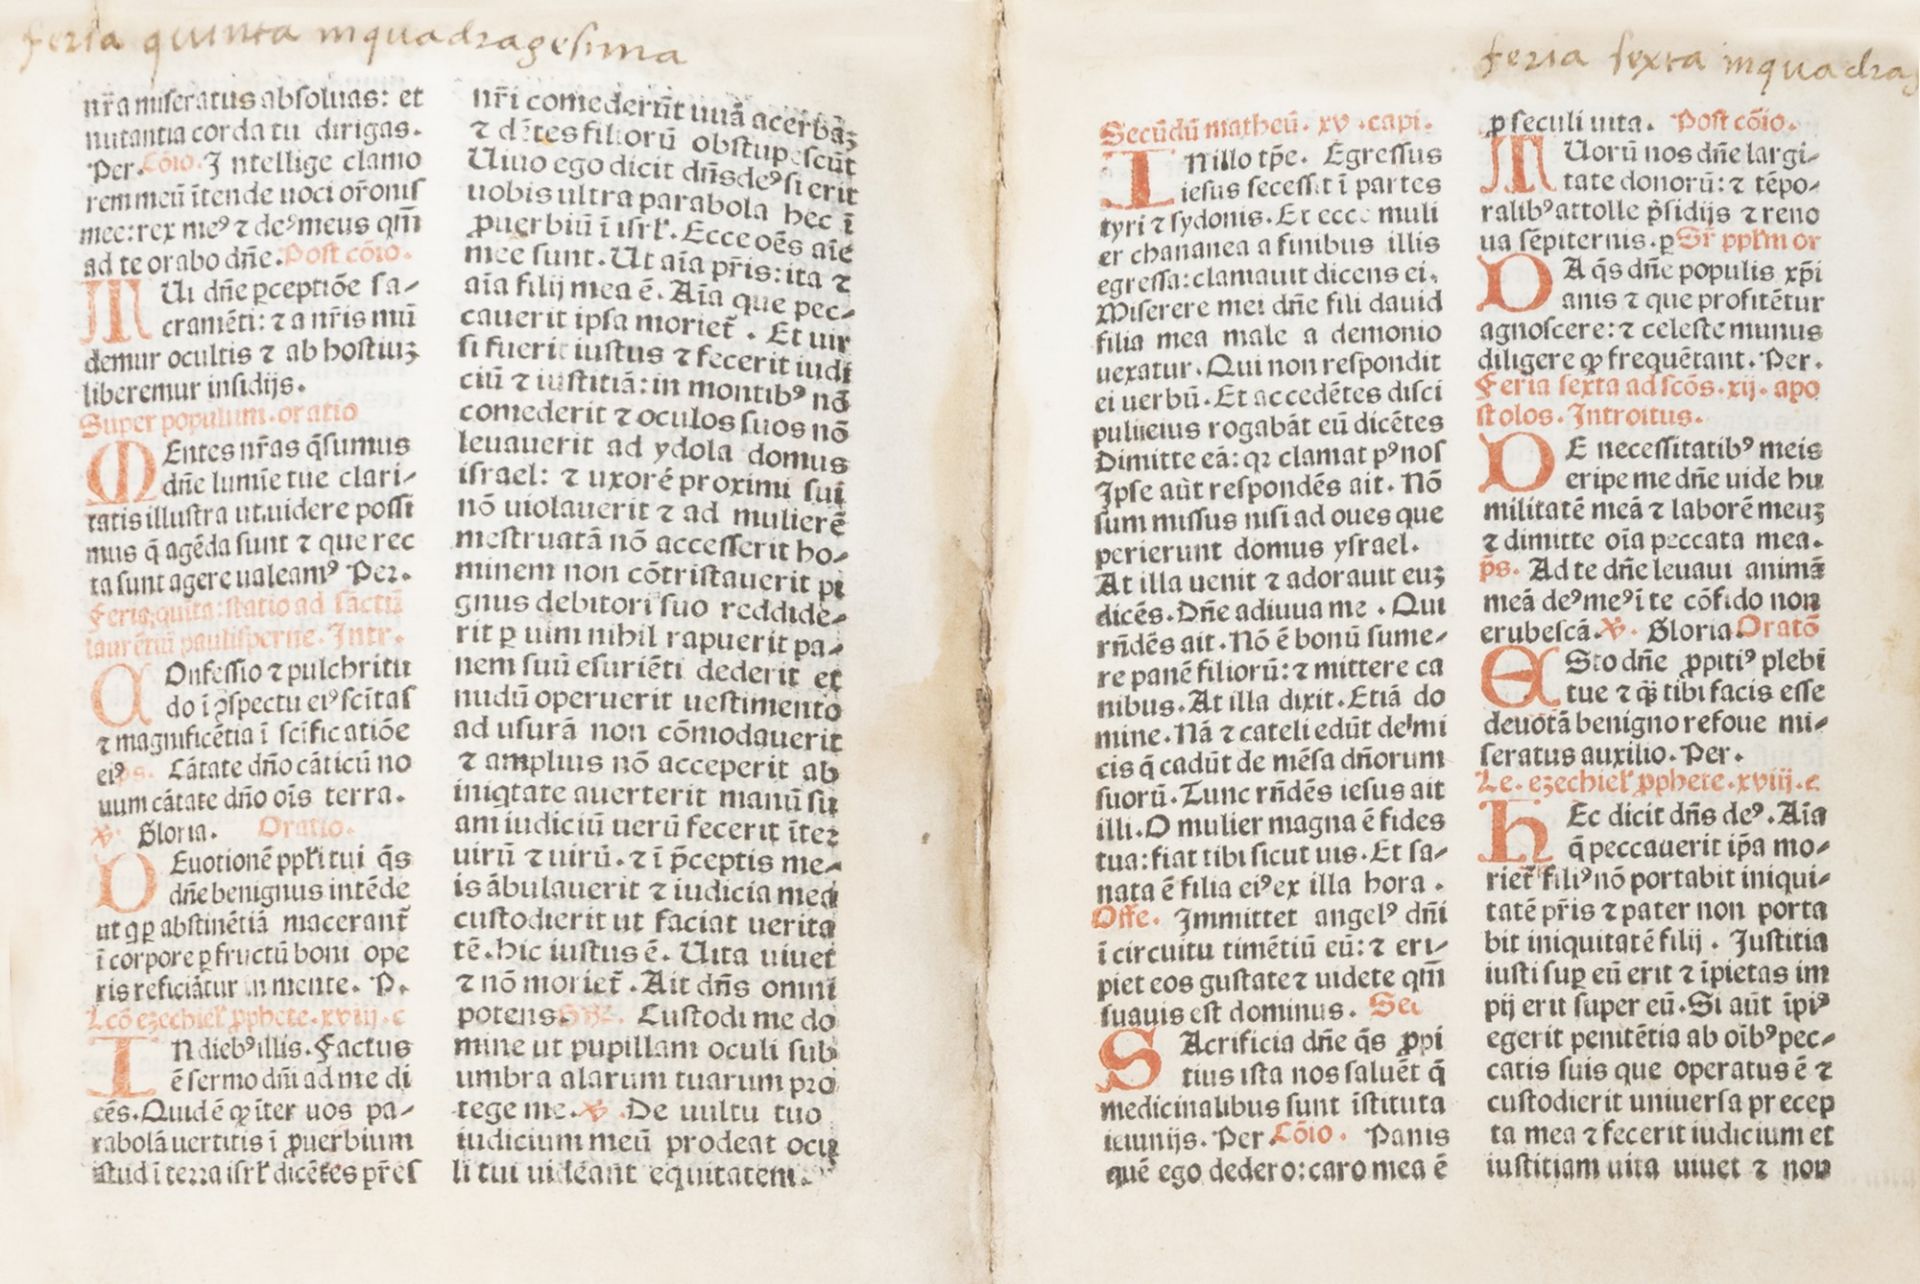 feria quinta inquadragesima
nr̄a miseratus absoluas: et
nutantia corda tu dirigas.
Per. Cōio. Intellige clamo
rem meū ītende uoci or̄onis
mee: rex meꝰ ⁊ deꝰ meus qm̄
ad te orabo dn̄e. Post cōio.
MUi dn̄e ꝑceptiōe sa-
cramēti: ⁊ a nr̄is mū
demur ocultis ⁊ ab hostiuꝫ
liberemur insidijs.
Super populum. oratio
MEntes nr̄as q̄sumus
dn̄e lumīe tue clari-
tatis illustra ut uidere possi
mus q̄ agēda sunt ⁊ que rec
ta sunt agere ualeamꝰ Per.
Feria quīta: statio ad sanctū
laurētiū panisperne. Intr.
COnfessio ⁊ pulchritu
do ī ꝯspectu eiꝰ scītas
⁊ magnificētia ī scificatiōe
eiꝰ ps. Cātate dn̄o cāticū no
uum cātate dn̄o oīs terra.
℣. Gloria. Oratio.
DEuotionē ppl̄i tui q̄s
dn̄e benignus intēde
ut q ꝑ abstinētiā macerant̄
ī corpore ꝑ fructū boni ope
ris reficiātur in mente. P.
Lcō ezechiel̄ ꝓphete. xviij. c
IN diebꝰ illis. Factus
ē sermo dn̄i ad me di
cēs. Quid ē ꝙ īter uos pa-
rabolā uertitis ī ꝓuerbium
istud ī terra isrl̄ dicētes pr̄es
nr̄i comederūt uuā acerbāꝫ
⁊ dētes filiorū obstupescūt
Uiuo ego dicit dn̄s deꝰ si erit
uobis ultra parabola hec ī
ꝓuerbiū ī isrl̄. Ecce oēs aīe
mee sunt. Ut aīa pr̄is: ita ⁊
aīa filij mea ē. Aīa que pec-
cauerit ipsa moriet̄. Et uir
si fuerit iustus ⁊ fecerit iudi
ciū ⁊ iustitiā: in montibꝰ nō
comederit ⁊ oculos suos nō
leuauerit ad ydola domus
israel: ⁊ uxorē proximi sui
nō uiolauerit ⁊ ad mulierē
mestruatā nō accesserit ho-
minem non cōtristauerit pi
gnus debitori suo reddide-
rit ꝑ uim nihil rapuerit pa-
nem suū esuriēti dederit et
nudū operuerit uestimento
ad usurā non cōmodauerit
⁊ amplius nō acceperit ab
iniqtate auerterit manū su
am iudiciū uerū fecerit īter
uirū ⁊ uirū. ⁊ ī p̄ceptis me-
is ābulauerit ⁊ iudicia mea
custodierit ut faciat uerita
tē. hic iustus ē. Uita uiuet
⁊ nō moriet̄. Ait dn̄s omni
potens. Custodi me do
mine ut pupillam oculi sub
umbra alarum tuarum pro
tege me. ℣. De uultu tuo
iudicium meū prodeat ocu
li tui uideant equitatem.
feria sexta inquadrag
Secūdū matheū. xv. capi.
IN illo tp̄e. Egressus
iesus secessit ī partes
tyri ⁊ sydonis. Et ecce muli
er chananea a finibus illis
egressa: clamauit dicens ei.
Miserere mei dn̄e fili dauid
filia mea male a demonio
uexatur. Qui non respondit
ei uerbū. Et accedētes disci
puli eius rogabāt eū dicētes
Dimitte eā: qꝛ clamat pꝰ nos
Ipse aūt respondēs ait. Nō
sum missus nisi ad oues que
perierunt domus ysrael.
At illa uenit ⁊ adorauit euꝫ
dicēs. Dn̄e adiuua me. Qui
rn̄dēs ait. Nō ē bonū sume-
re panē filiorū: ⁊ mittere ca
nibus. At illa dixit. Etiā do
mine. Nā ⁊ cateli edūt de mi
cis q̄ cadūt de mēsa dn̄orum
suorū. Tunc rn̄dēs iesus ait
illi. O mulier magna ē fides
tua: fiat tibi sicut uis. Et sa-
nata ē filia eiꝰ ex illa hora.
Offe. Immittet angelꝰ dn̄i
ī circuitu timētiū eū: ⁊ eri-
piet eos gustate ⁊ uidete qm̄
suauis est dominus. Sec
SAcrificia dn̄e q̄s ꝓpi
tius ista nos saluēt q̄
medicinalibus sunt īstituta
ieiunijs. Per. Cōio. Panis
quē ego dedero: caro mea ē
ꝓ seculi uita. Post cōio.
TUorū nos dn̄e largi-
tate donorū: ⁊ tēpo-
ralibꝰ attolle p̄sidijs ⁊ reno
ua sēpiternis. ꝑ Sr̄ ppl̄m or
DA q̄s dn̄e populis xp̄i
anis ⁊ que profitētur
agnoscere: ⁊ celeste munus
diligere ꝙ frequētant. Per.
Feria sexta ad scōs. xij. apo
stolos. Introitus.
DE necessitatibꝰ meis
eripe me dn̄e uide hu
militatē meā ⁊ laborē meuꝫ
⁊ dimitte oīa peccata mea.
p̄s. Ad te dn̄e leuaui animā
meā deꝰ meꝰ ī te cōfido non
erubescā. ℣. Gloria. Oratō
ESto dn̄e ꝓpitiꝰ plebi
tue ⁊ quā tibi facis esse
deuotā benigno refoue mi-
seratus auxilio. Per.
Le. ezechiel̄ ꝓphete. xviij. c
hEc dicit dn̄s deꝰ. Aīa
q̄ peccauerit ip̄a mo-
riet̄ filiꝰ nō portabit iniqui-
tatē pr̄is ⁊ pater non porta
bit iniquitatē filij. Iustitia
iusti suꝑ eū erit ⁊ īpietas im
pij erit super eū. Si aūt īpiꝰ
egerit penitētia ab oībꝰ pec-
catis suis que operatus ē ⁊
custodierit uniuersa precep
ta mea ⁊ fecerit iudicium et
iustitiam uita uiuet ⁊ non